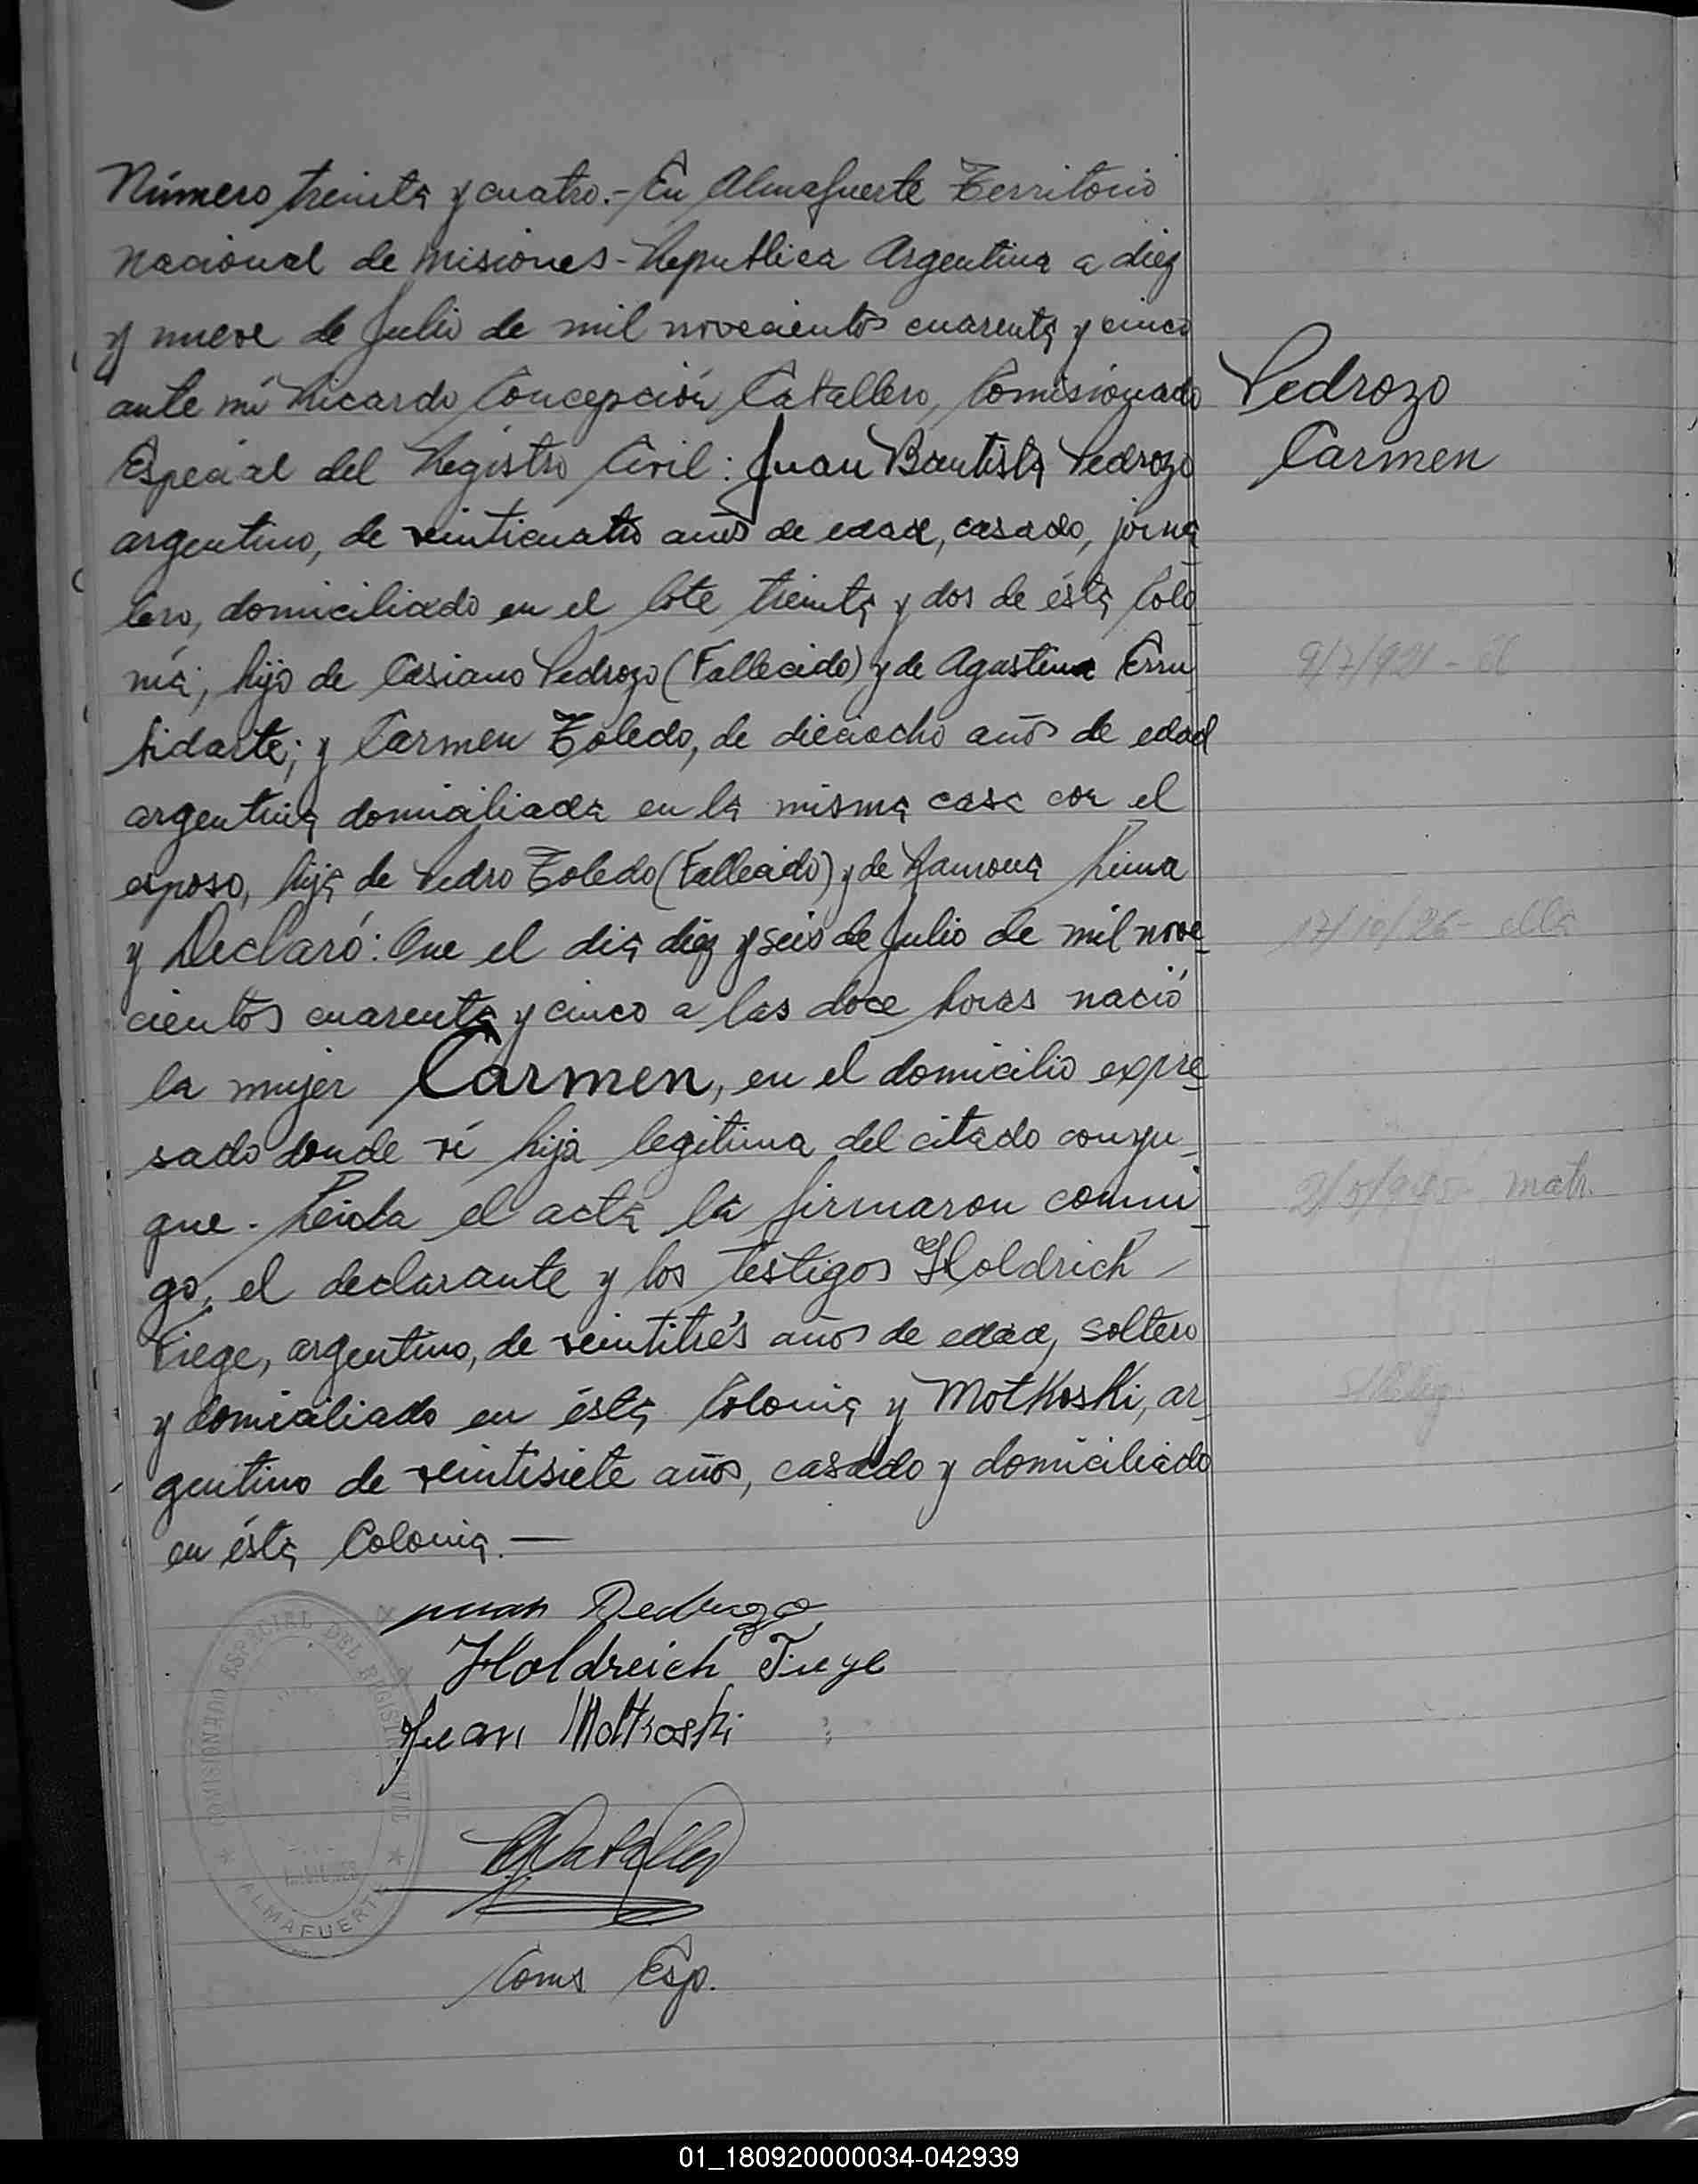 Número treinta y cuatro.- En Almafuerte Territorio
Nacional de Misiones - Republica Argentina a diez
y nueve de Julio de mil novecientos cuarenta y cinco
ante mí Ricardo Concepción Caballero, Comisionado
Especial del Registro Civil: Juan Bautista Pedrozo
argentino, de veinticuatro años de edad, casado, jorna
lero, domiciliado en el lote treinta y dos de ésta Colo
nia, hijo de Casiano Pedrozo (Fallecido) y de Agustina Erru
bidarte; y Carmen Toledo, de dieciocho años de edad
argentina domiciliada en la misma casa con el
esposo, hija de Pedro Toledo (Fallecido) y de Ramona Lima
y Declaró: Que el dia diez y seis de Julio de mil nove
cientos cuarenta y cinco a las doce horas nació
la mujer Carmen, en el domicilio expre
sado donde ví hija legitima del citado conyu
gue. Leida el acta la firmaron conmi
go, el declarante y los testigos Holdrich
Fiege, argentino, de veintitrés años de edad, soltero
y domiciliado en ésta Colonia y Motkoski, ar
gentino de veintisiete años, casado y domiciliado
en ésta Colonia.—
Pedrozo
Carmen
9/7/921 - él
17/10/26 - ella
2/5/945 - matr.
Juan Pedrozo
Holdreich Fiege
Juan Motkoski
Caballero
Coms Esp.
COMISIONADO ESPECIAL DEL REGISTRO CIVIL
* ALMAFUERTE *
01_180920000034-042939